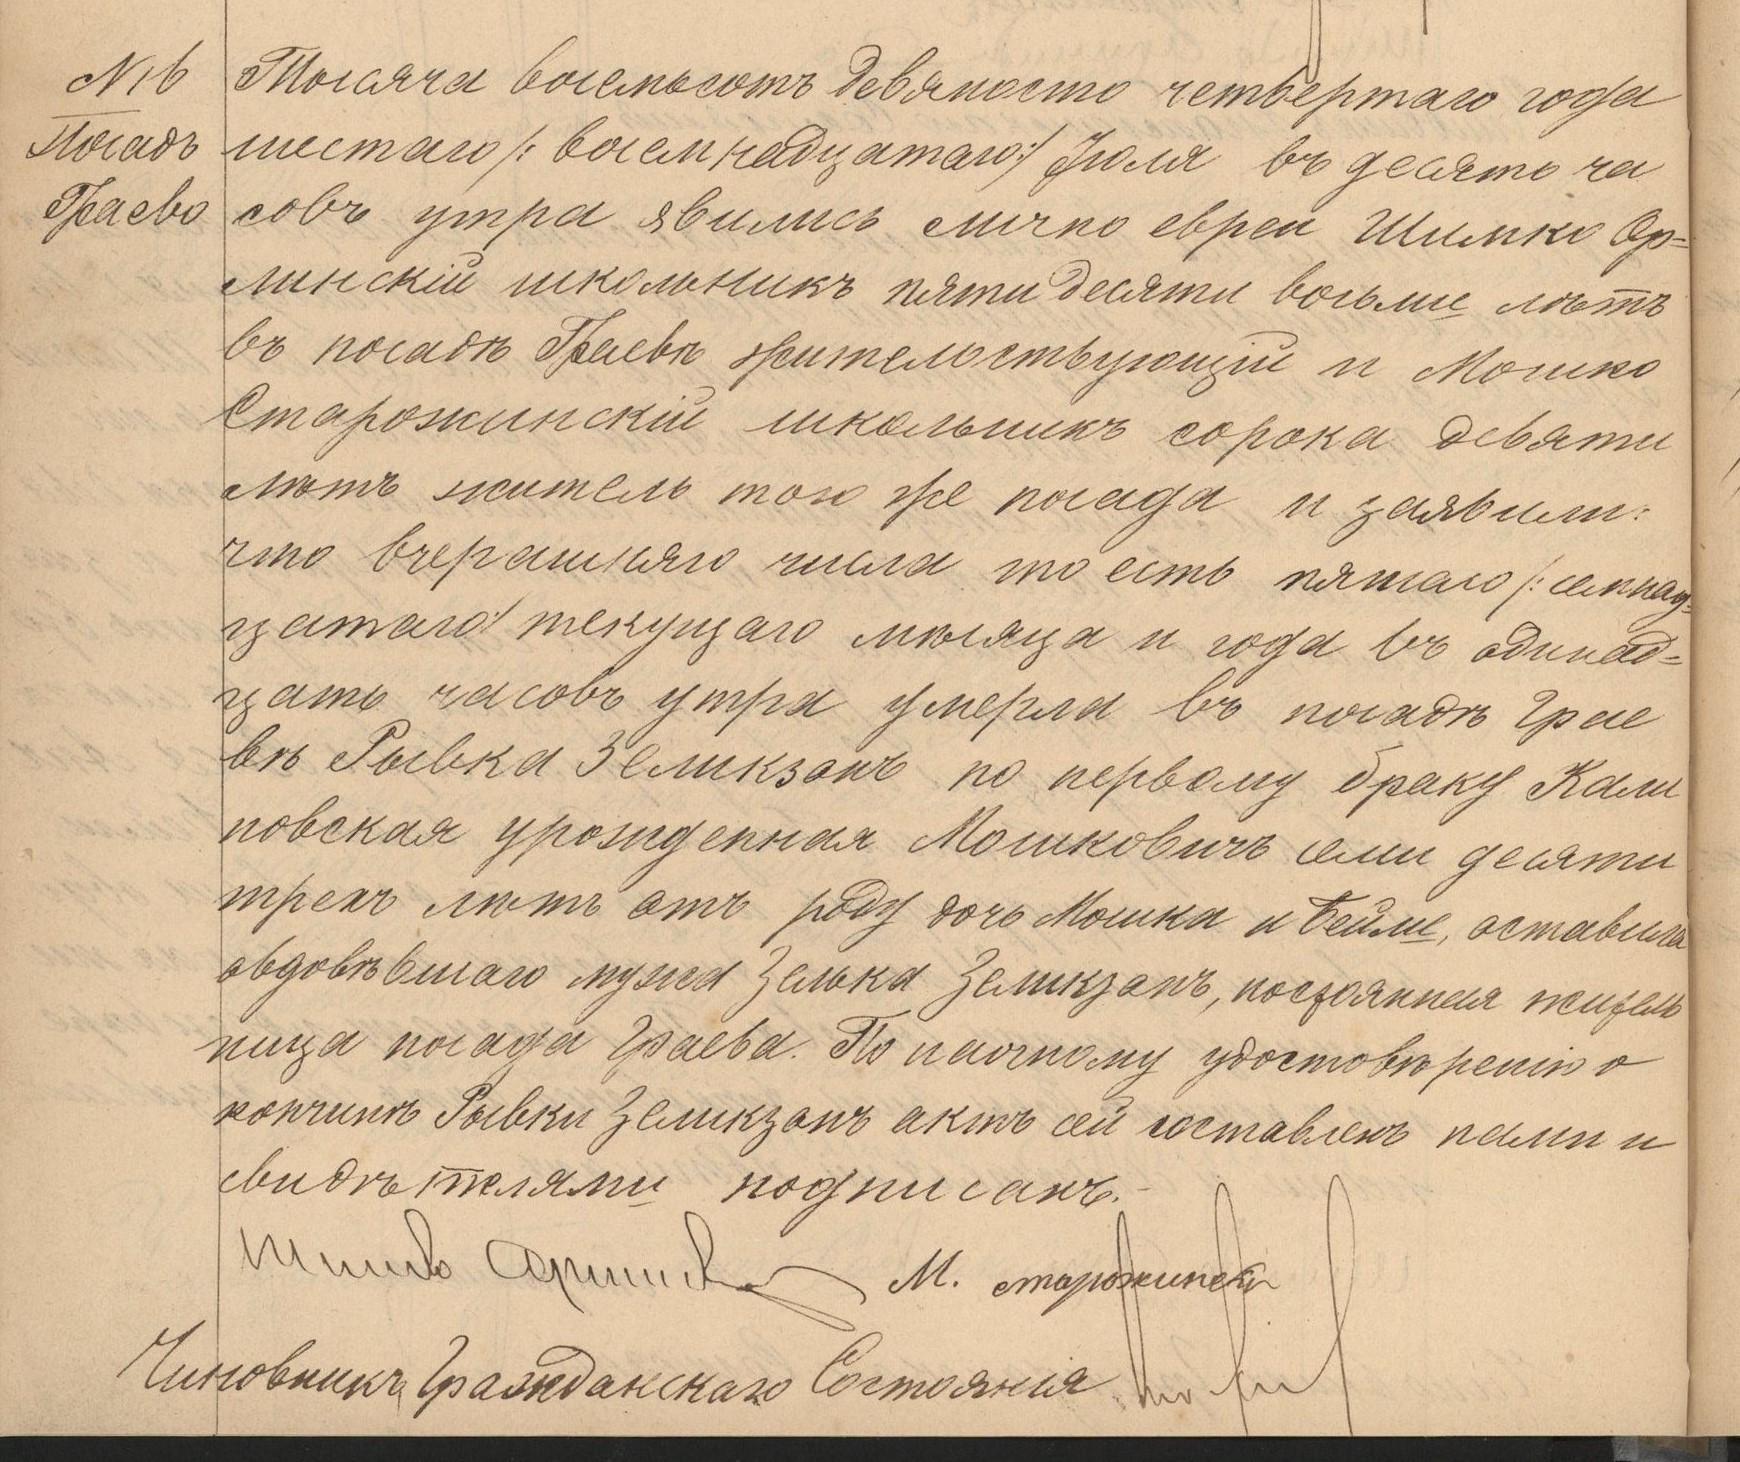 № 16
Посадъ
Граево
Тысяча восемьсотъ девяносто четвертаго года
шестаго /: восемнадцатаго :/ Іюля въ десять ча
совъ утра явились лично евреи Шимко Ор=
линскій школьникъ пятидесяти восьми лѣтъ
въ посадѣ Граевѣ жительствующій и Мошко
Старожинскій школьникъ сорока девяти
лѣтъ житель того же посада и заявили:
что вчерашняго числа то есть пятаго /: семнад=
цатаго :/ текущаго мѣсяца и года въ одинад=
цать часовъ утра умерла въ посадѣ Грае
вѣ Рывка Зеликзонъ по первому браку Кали
новская урожденная Мошковичъ семи десяти
трехъ лѣтъ отъ роду дочь Мошка и Бейли, оставила
овдовѣвшаго мужа Зелька Зеликзонъ, постоянная житель
ница посада Граева. По наочному удостовѣренію о
кончинѣ Рывки Зеликзонъ актъ сей составленъ нами и
свидѣтелями подписанъ.-
Шимко Орлинскій М. Старожински
Чиновникъ Гражданскаго Состоянія